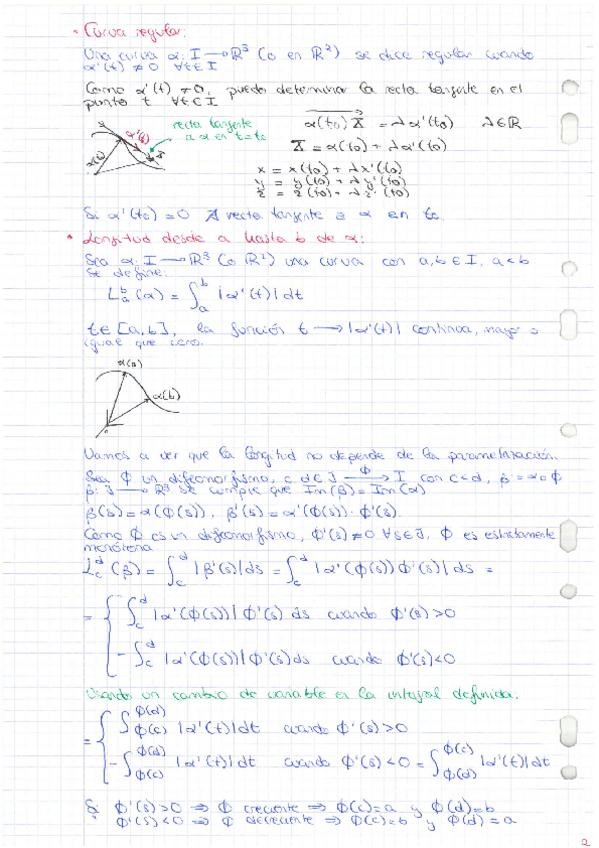 • Curva regular:
Una curva α: I → R³ (o en R²) se dice regular cuando
α'(t) ≠ 0 ∀t∈I
Como α'(t) ≠ 0, puedo determinar la recta tangente en el
punto t ∀t∈I
recta tangente
a α en t=t₀
α'(t₀)
α(t₀)
α(t₀)X = λα'(t₀) λ∈R
X = α(t₀) + λα'(t₀)
x = x(t₀) + λx'(t₀)
y = y(t₀) + λy'(t₀)
z = z(t₀) + λz'(t₀)
Si α'(t₀) = 0 ∄ recta tangente a α en t₀.
• Longitud desde a hasta b de α:
Sea α: I → R³ (o R²) una curva con a,b∈I, a<b
Se define:
L_a^b(α) = ∫_a^b |α'(t)| dt
t∈[a,b], la función t → |α'(t)| continua, mayor o
igual que cero.
α(a)
α(b)
Vamos a ver que la longitud no depende de la parametrización.
Sea Φ un difeomorfismo, c,d∈J →Φ I con c<d, β = α∘Φ
β: J → R³ se cumple que Im(β) = Im(α)
β(s) = α(Φ(s)), β'(s) = α'(Φ(s))·Φ'(s)
Como Φ es un difeomorfismo, Φ'(s) ≠ 0 ∀s∈J, Φ es estrictamente
monótona
L_c^d(β) = ∫_c^d |β'(s)| ds = ∫_c^d |α'(Φ(s)) Φ'(s)| ds =
= { ∫_c^d |α'(Φ(s))| Φ'(s) ds cuando Φ'(s) > 0
- ∫_c^d |α'(Φ(s))| Φ'(s) ds cuando Φ'(s) < 0
Usando un cambio de variable en la integral definida.
= { ∫_Φ(c)^Φ(d) |α'(t)| dt cuando Φ'(s) > 0
- ∫_Φ(c)^Φ(d) |α'(t)| dt cuando Φ'(s) < 0 = ∫_Φ(d)^Φ(c) |α'(t)| dt
Si Φ'(s) > 0 ⇒ Φ creciente ⇒ Φ(c) = a y Φ(d) = b
Φ'(s) < 0 ⇒ Φ decreciente ⇒ Φ(c) = b y Φ(d) = a
2